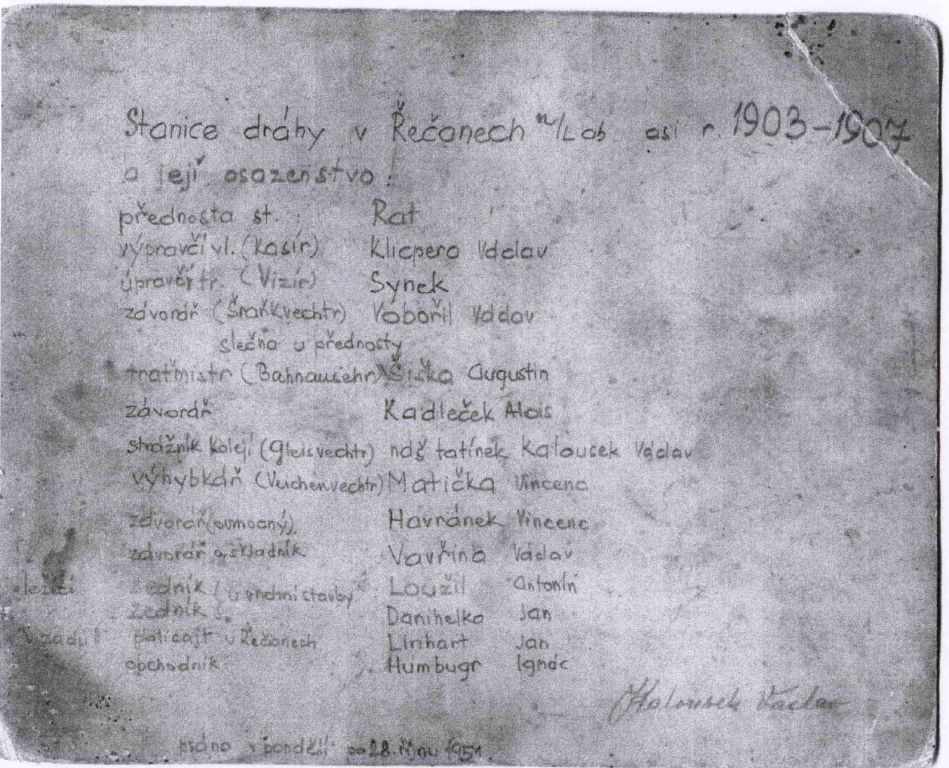 Stanice dráhy v Řečanech n/Lab asi r. 1903-1907
a její osazenstvo:
přednosta st. Rat
výpravčí vl. (kasír) Klicpera Václav
úpravčí tr. (Vizír) Synek
závorář (Šraňkvechtr) Vobořil Václav
slečna u přednosty
traťmistr (Bahnausehr) Šiška Augustin
závorář Kadleček Alois
strážník kolejí (gleisvechtr) náš tatínek Kalousek Václav
výhybkář (Veichenvechtr) Matička Vincenc
závorář (pomocný) Havránek Vincenc
závorář a skladník Vavřina Václav
ležící zedník u vrchní stavby Loužil Antonín
zedník Danihelka Jan
vzadu policajt v Řečanech Linhart Jan
obchodník Humbugr Ignác
Kalousek Václav
psáno v pondělí 28. říjnu 1951